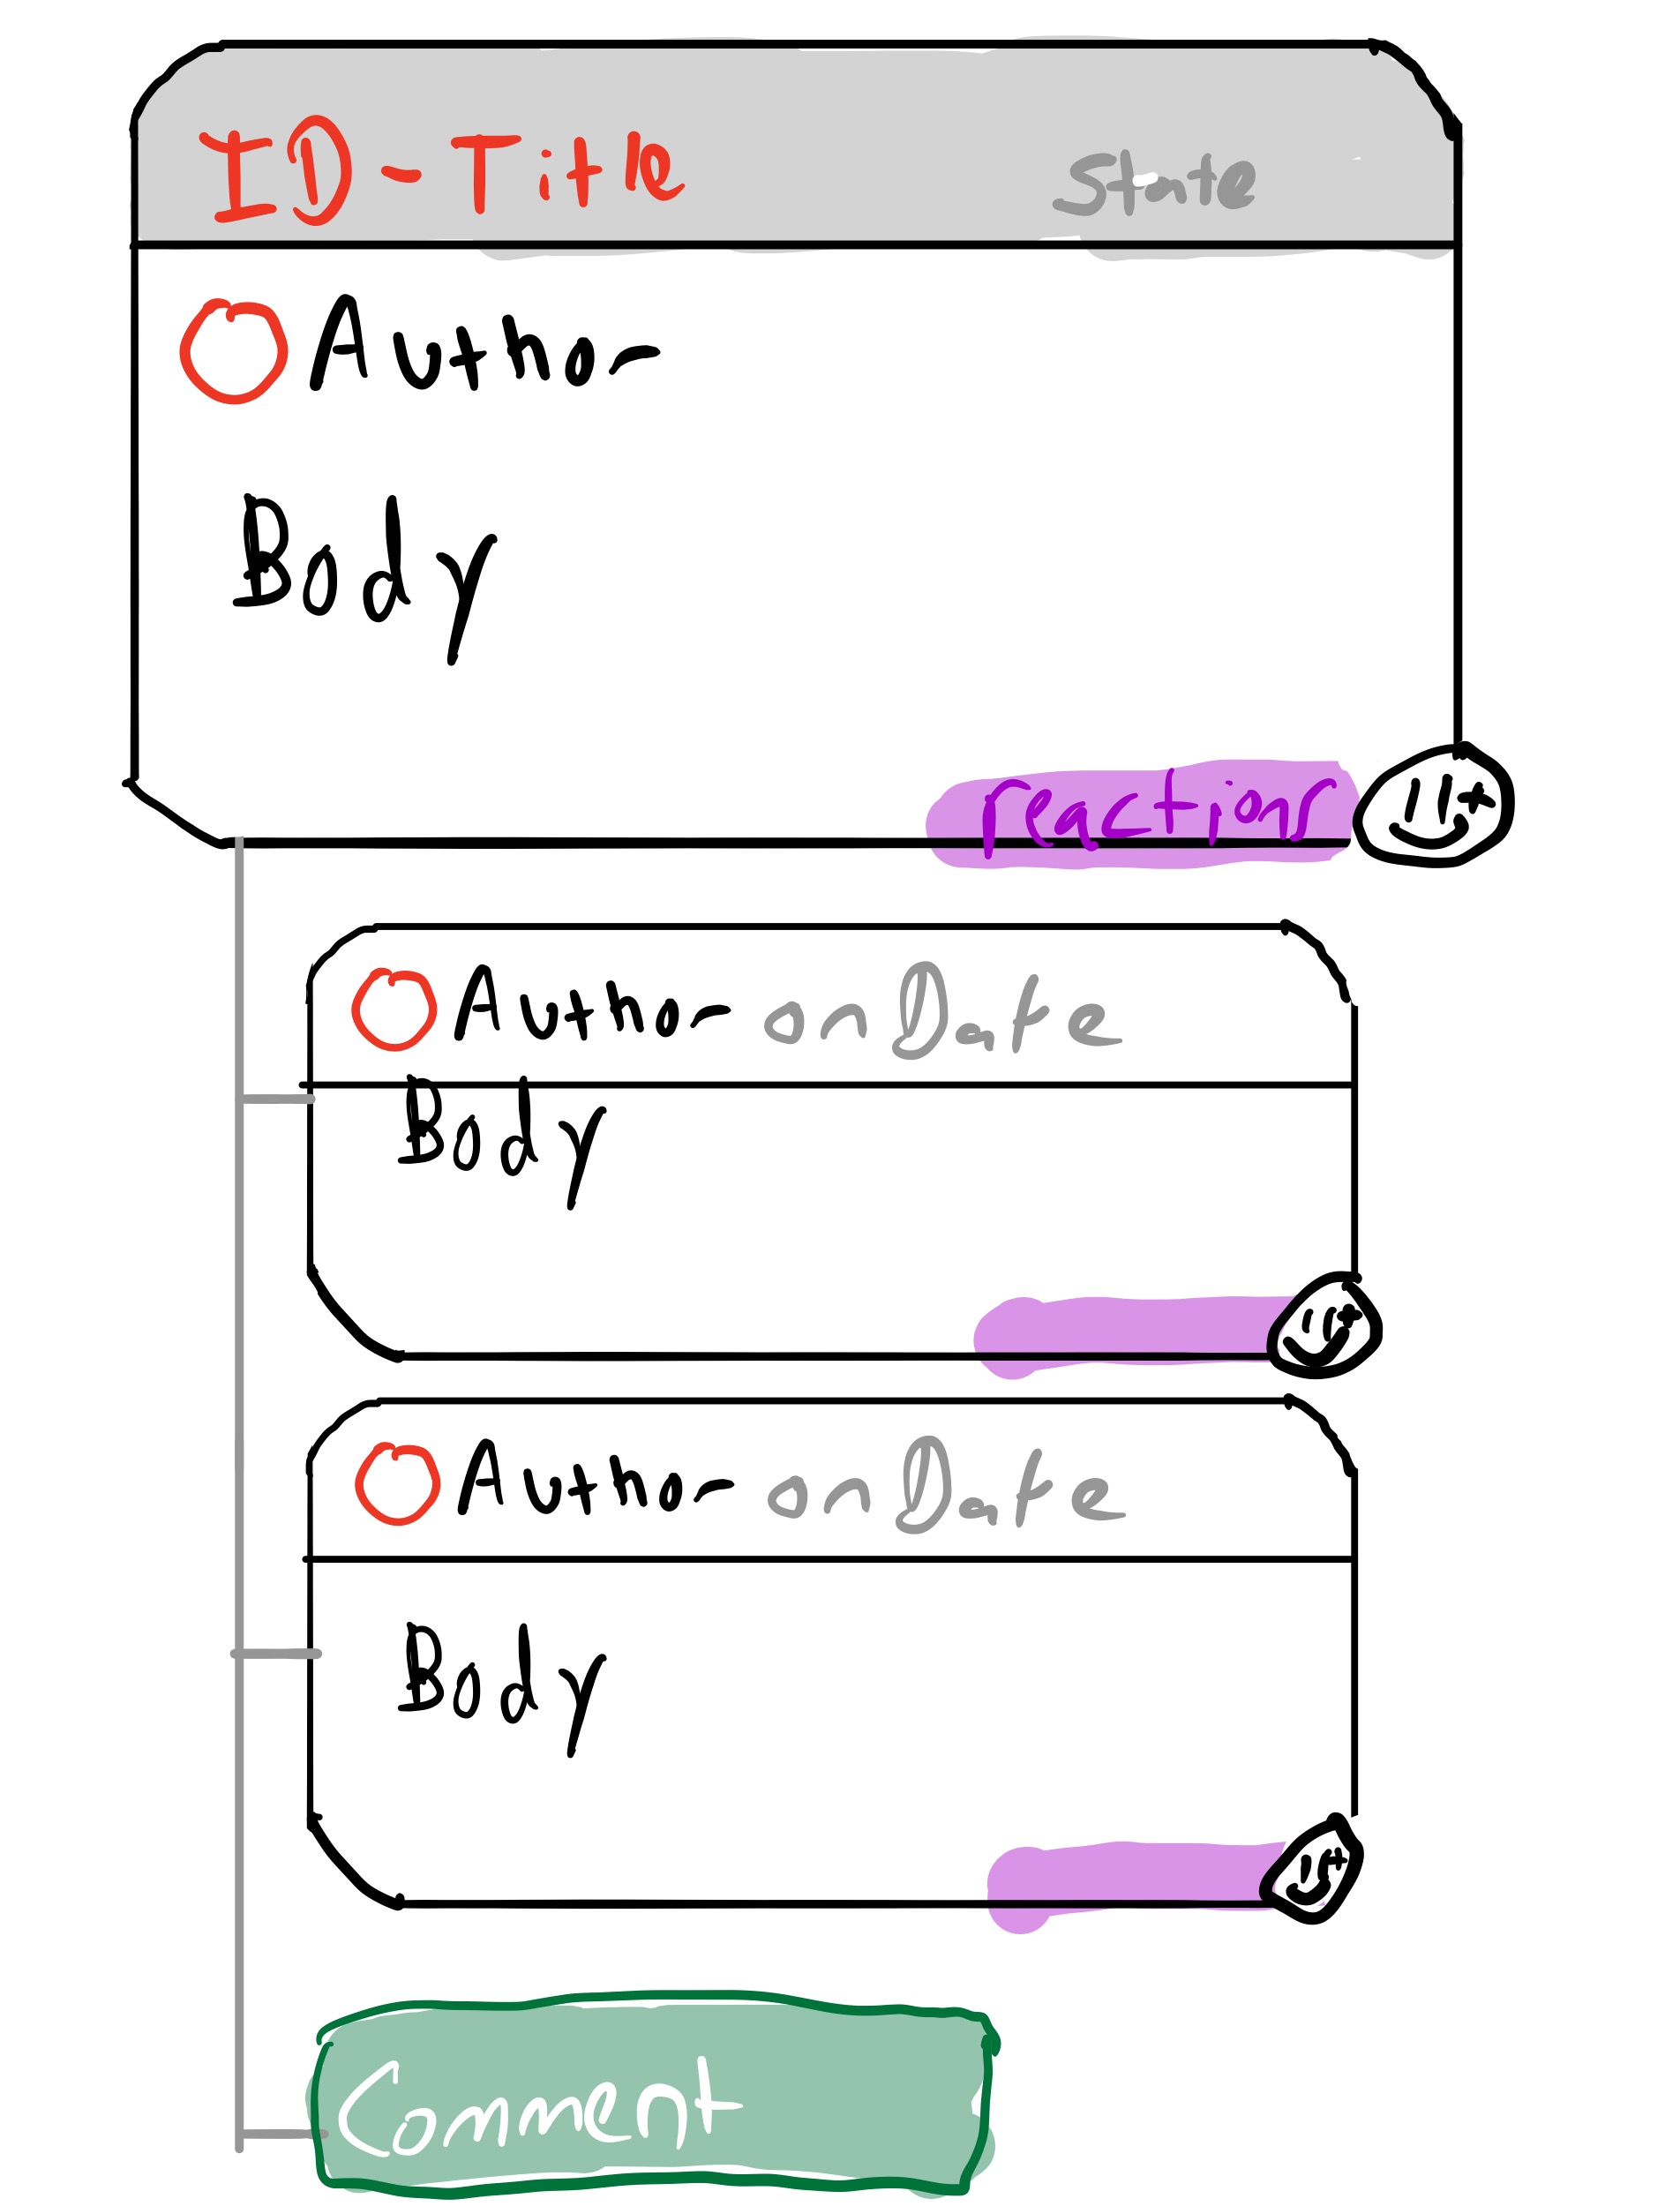 ID - Title
State
Author
Body
reaction
Author on Date
Body
Author on Date
Body
Comment